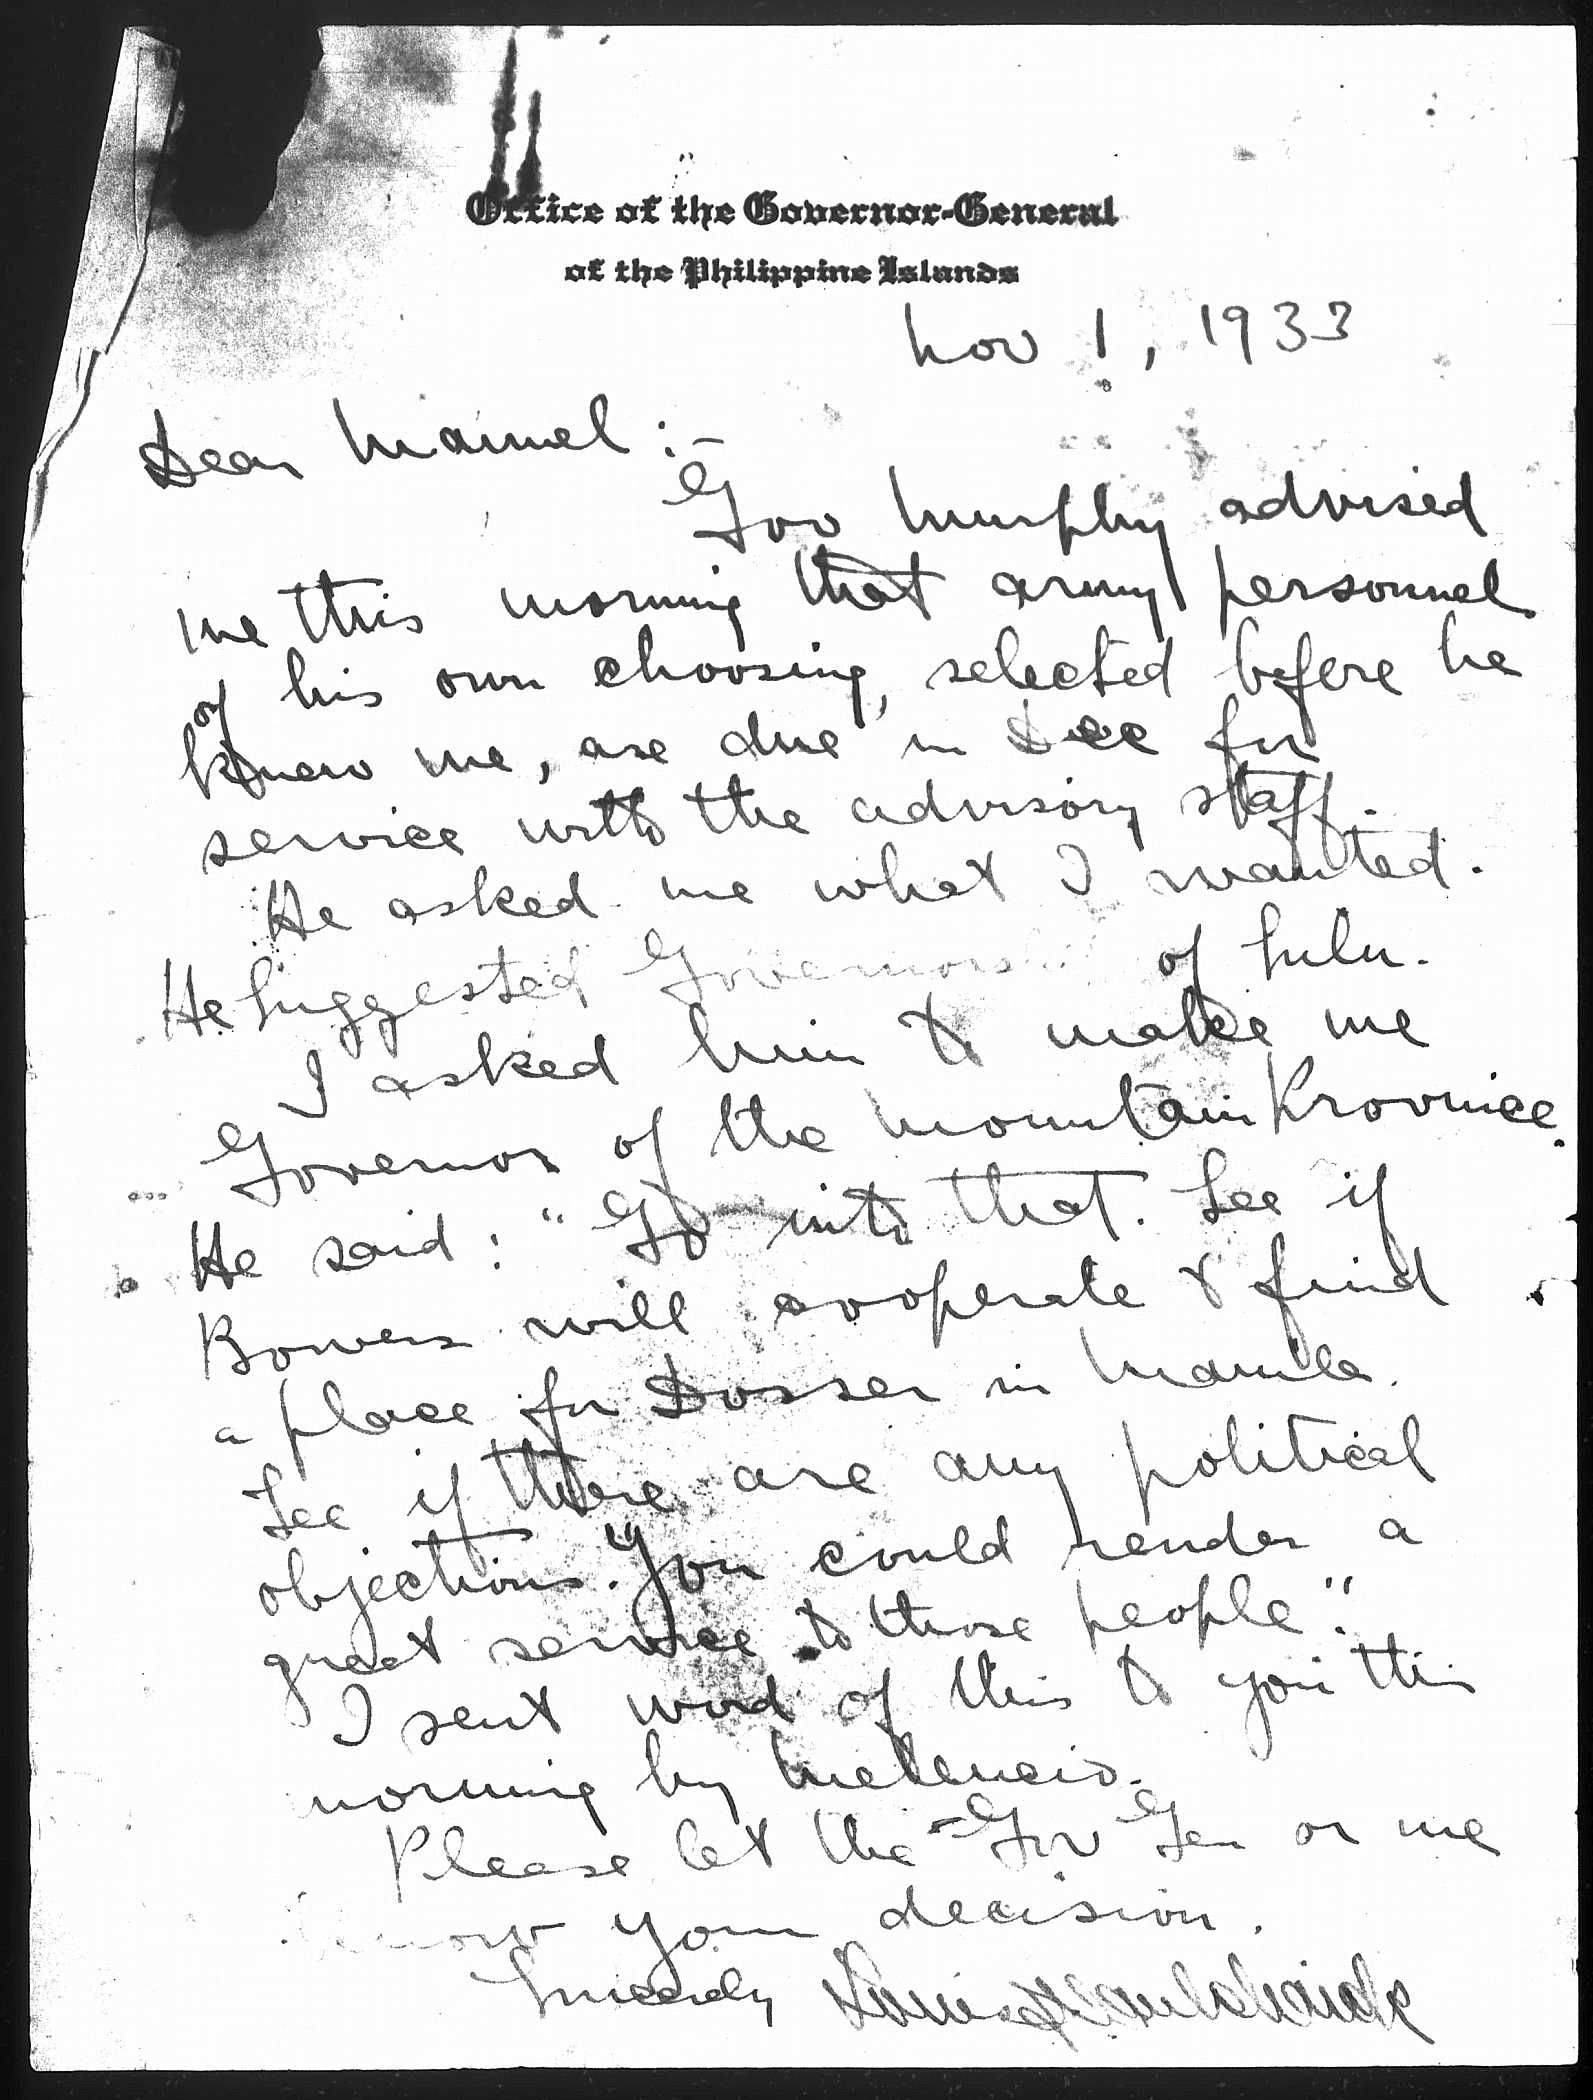 Office of the Governor-General
of the Philippine Islands
Nov 1, 1933
Dear Manuel :-
Gov Murphy advised
me this morning that army personnel
of his own choosing, selected before he
knew me, are due in Dec for
service with the advisory staff.
He asked me what I wanted.
He suggested Governorship of Sulu.
I asked him to make me
Governor of the Mountain Province.
He said: "Go into that. See if
Bowers will cooperate & find
a place for Dosser in Manila.
See if there are any political
objections. You could render a
great service to those people".
I sent word of this to you this
morning by Melencio.
Please let the Gov Gen or me
know your decision.
Sincerely